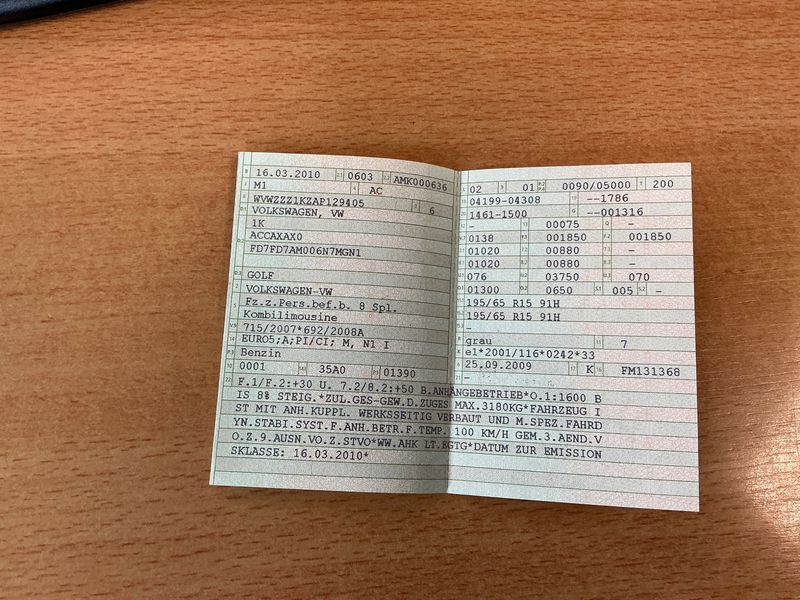 16.03.2010 0603 AMK000636
M1 AC
WVWZZZ1KZAP129405 6
VOLKSWAGEN, VW
1K
ACCAXAX0
FD7FD7AM006N7MGN1
GOLF
VOLKSWAGEN-VW
Fz.z.Pers.bef.b. 8 Spl.
Kombilimousine
715/2007*692/2008A
EURO5;A;PI/CI; M, N1 I
Benzin
0001 35A0 01390
02 01 0090/05000 200
04199-04308 --1786
1461-1500 --001316
- 00075 -
0138 001850 001850
01020 00880 -
01020 00880 -
076 03750 070
01300 0650 005 -
195/65 R15 91H
195/65 R15 91H
-
grau 7
e1*2001/116*0242*33
25.09.2009 K FM131368
-
F.1/F.2:+30 U. 7.2/8.2:+50 B.ANHÄNGEBETRIEB*O.1:1600 B
IS 8% STEIG.*ZUL.GES-GEW.D.ZUGES MAX.3180KG*FAHRZEUG I
ST MIT ANH.KUPPL. WERKSSEITIG VERBAUT UND M.SPEZ.FAHRD
YN.STABI.SYST.F.ANH.BETR.F.TEMP. 100 KM/H GEM.3.AEND.V
O.Z.9.AUSN.VO.Z.STVO*WW.AHK LT.EGTG*DATUM ZUR EMISSION
SKLASSE: 16.03.2010*